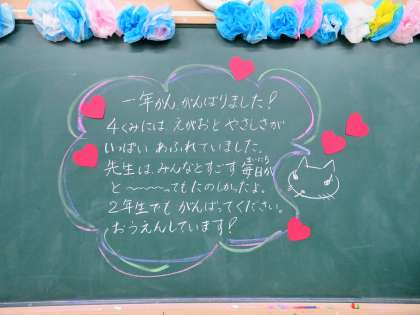 一年かん、がんばりました！
4くみには えがおと やさしさが
いっぱい あふれていました。
先生は、みんなとすごす毎日が
まいにち
と〜〜〜ってもたのしかったよ。
2年生でも がんばってください。
おうえんしています！